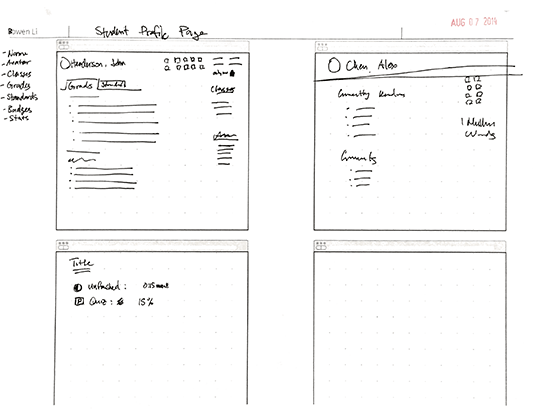 Bowen Li
Student Profile Page
AUG 07 2014
- Name
- Avatar
- Classes
- Grades
- Standards
- Badges
- Stats
Henderson, John
Grades
Standards
Classes
Chen, Alex
Currently Reading
1 Million
Words
Comments
Title
Unpacked:
Quiz: 15%